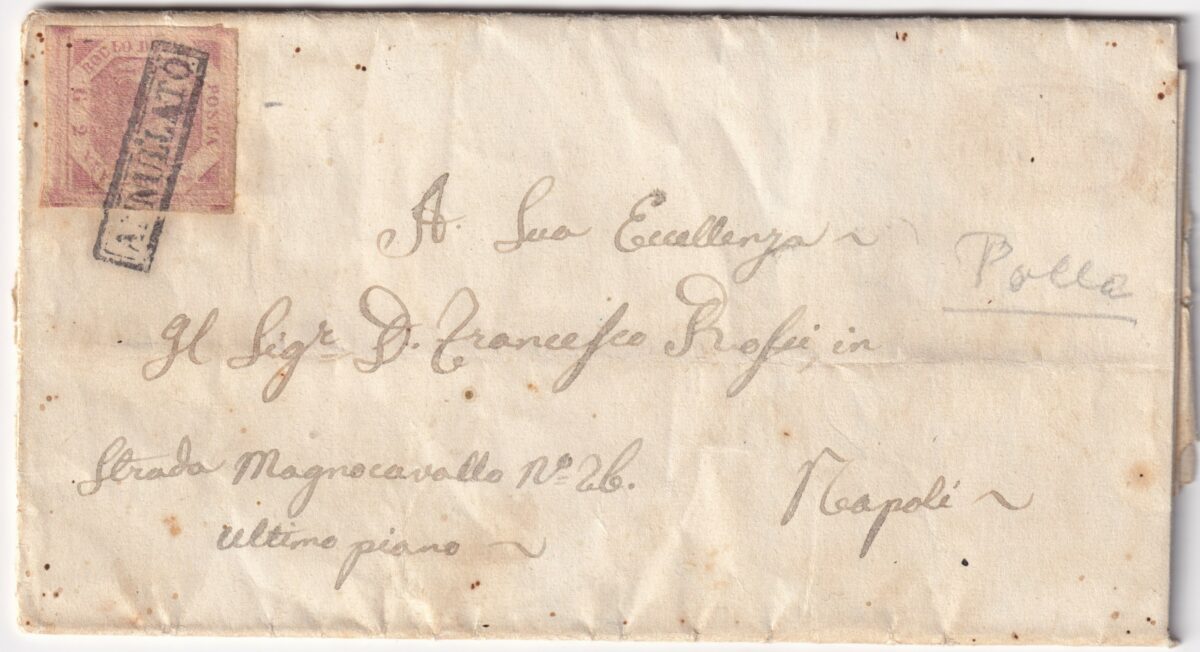 BOLLO DELLA
POSTA
G. 2
ANNULLATO
A. Sua Eccellenza
Polla
Il Sigr. D. Francesco Rossi, in
Strada Magnocavallo No. 26.
Napoli
ultimo piano